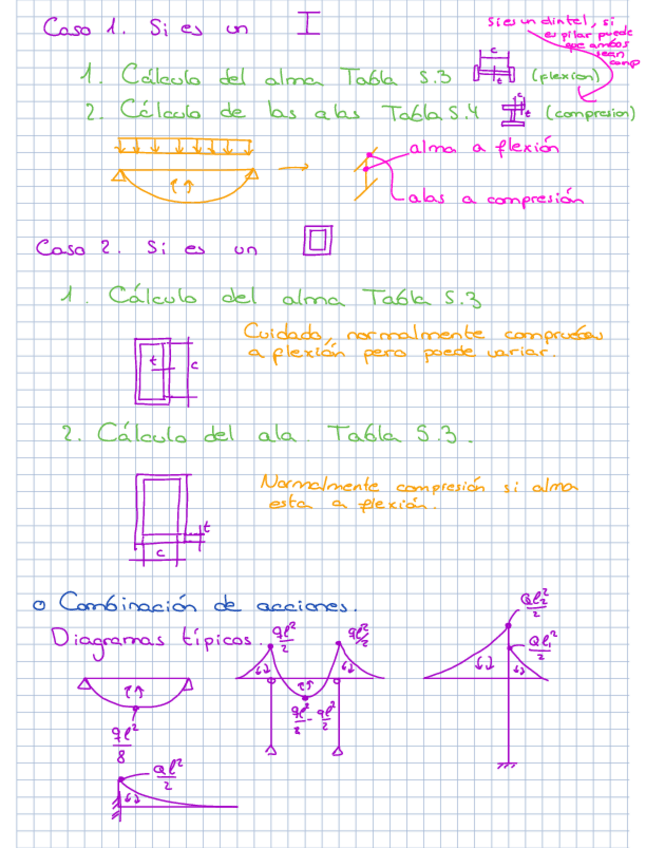 Caso 1. Si es un I
si es un dintel, si
es pilar puede
que ambos
sean
comp
1. Cálculo del alma Tabla 5.3 (flexion)
c
t
2. Cálculo de las alas Tabla 5.4 (compresion)
c
t
alma a flexión
alas a compresión
Caso 2. Si es un
1. Cálculo del alma Tabla 5.3
Cuidado, normalmente compruebas
a flexión pero puede variar.
t c
2. Cálculo del ala. Tabla 5.3.
Normalmente compresión si alma
esta a flexión.
t
c
o Combinación de acciones.
Diagramas típicos.
ql²/2 ql²/2
Ql₂²/2
Ql₁²/2
ql²/8
ql²/8 - ql²/2
Ql²/2